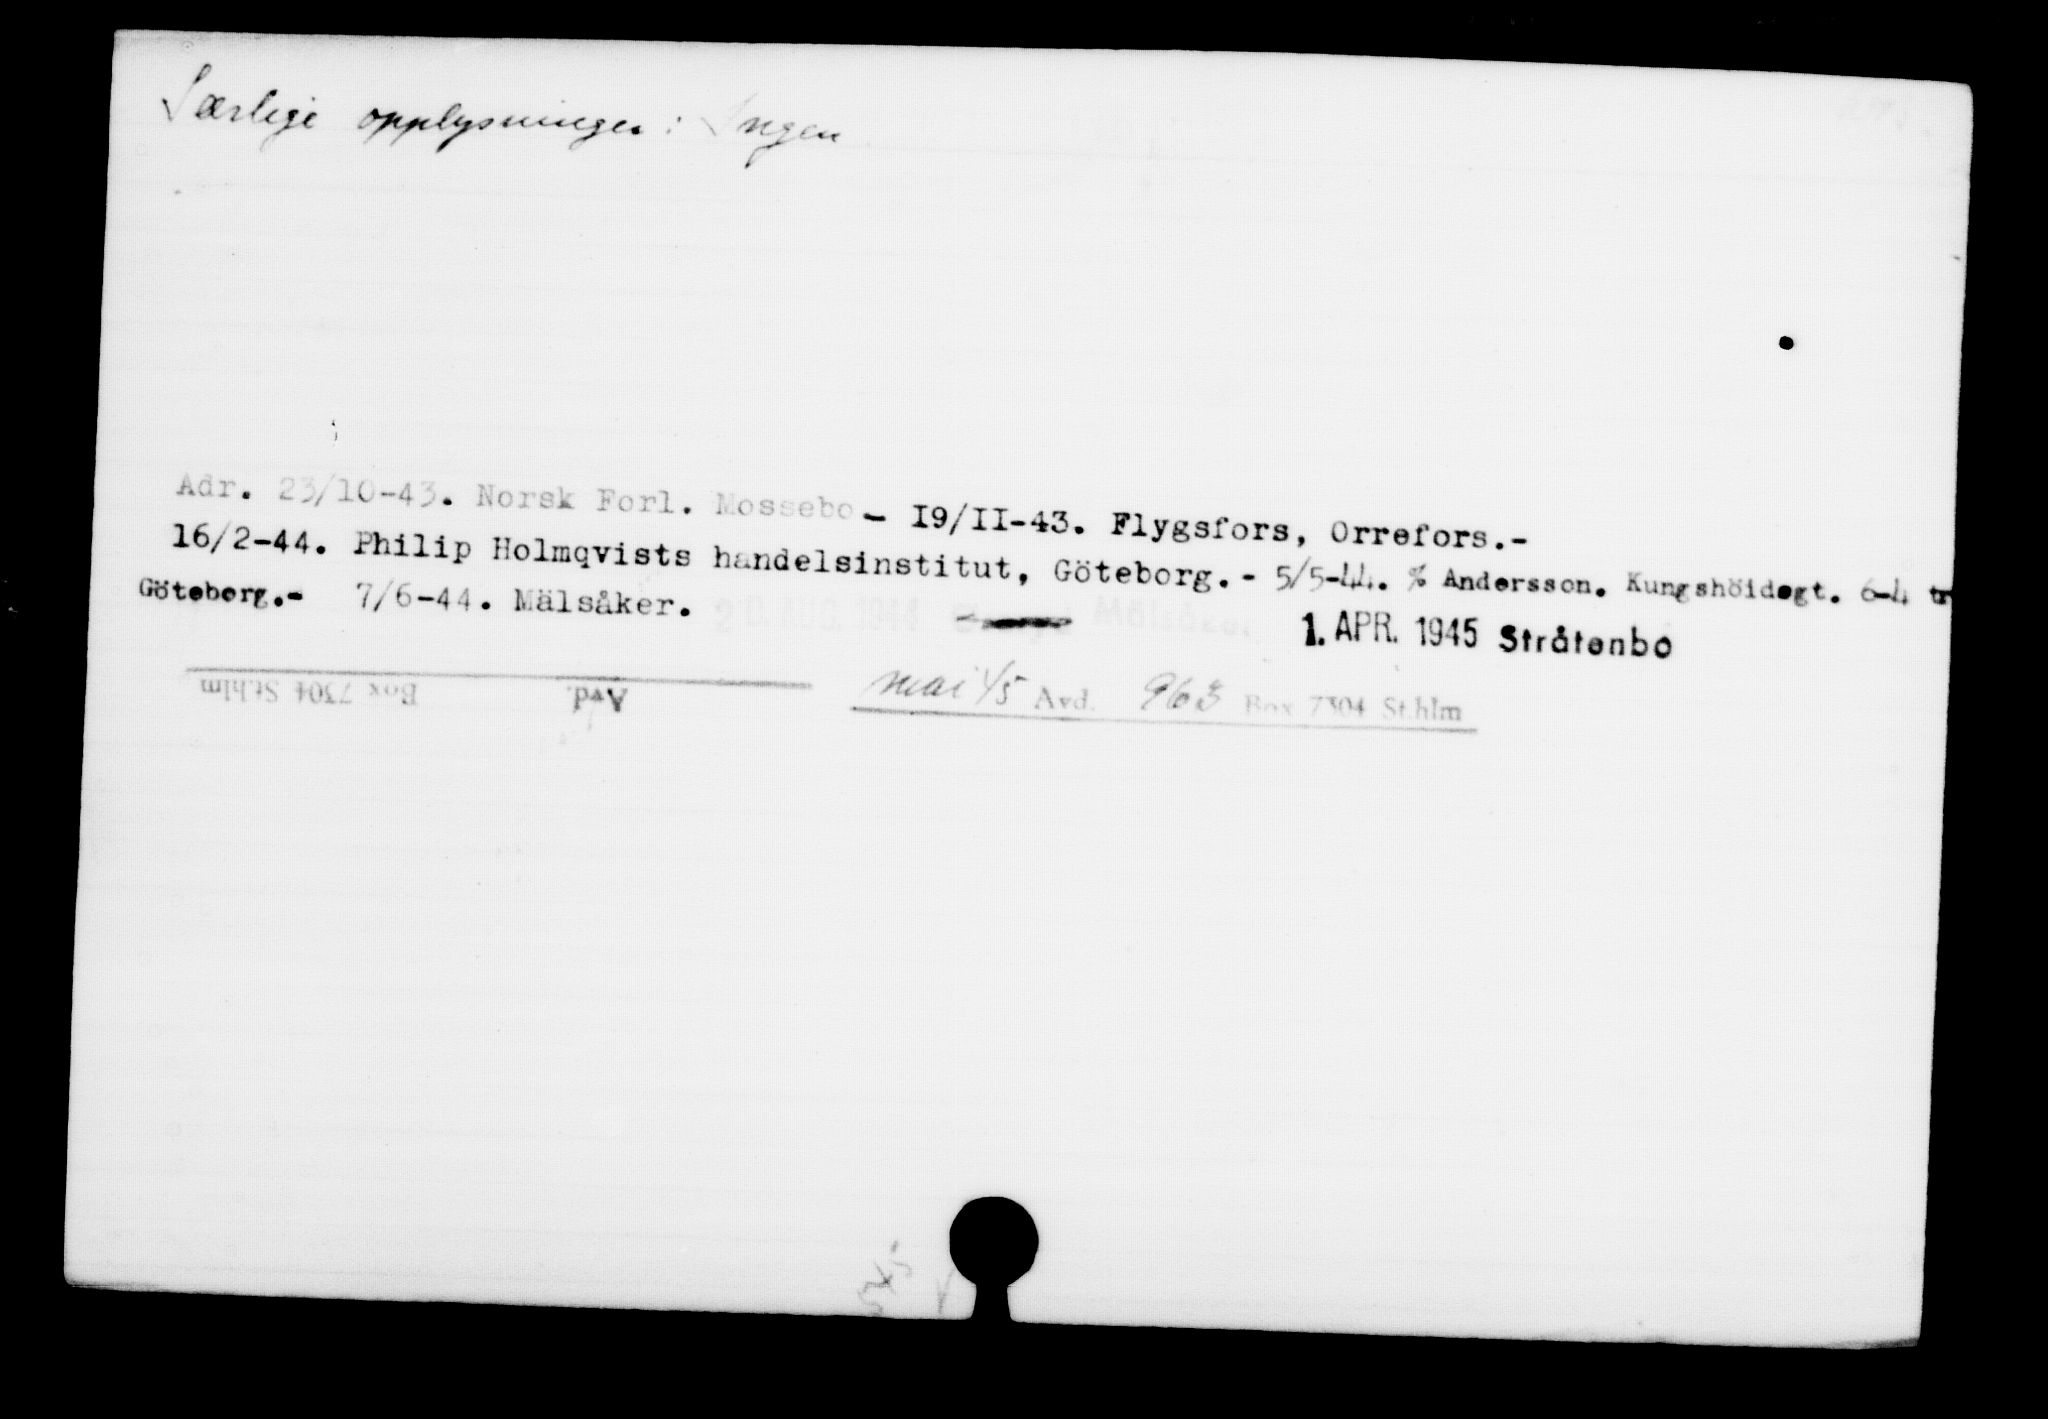 Særlige opplysninger: Ingen
Adr. 23/10-43. Norsk Forl. Mossebo - I9/II-43. Flygsfors, Orrefors.-
16/2-44. Philip Holmqvists handelsinstitut, Göteborg.- 5/5-44. % Andersson. Kungshöidsgt. 6-4 tr
Göteborg.- 7/6-44. Mälsåker. AUG. 1944 Mälsåker 1. APR. 1945 Stråtenbo
Avd. Box 7304 St.hlm
mai 45 Avd. 963 Box 7304 St.hlm